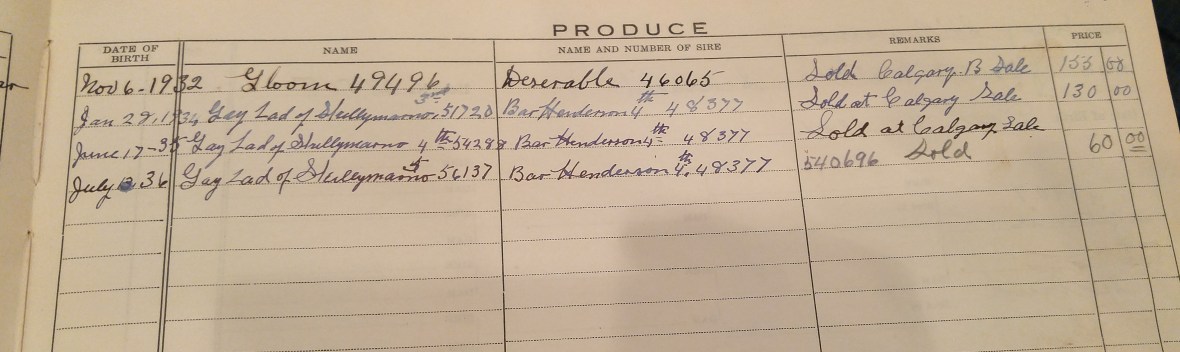 PRODUCE
DATE OF BIRTH NAME NAME AND NUMBER OF SIRE REMARKS PRICE
Nov 6-1932 Gloom 49496 Deserable 46065 Sold Calgary B Sale 155 00
Jan 29, 1934 Gay Lad of 3rd 51720 Bar Henderson 4th 48377 Sold at Calgary Sale 130 00
June 17-35 Gay Lad of 4th 54288 Bar Henderson 4th 48377 Sold at Calgary Sale
July 36 Gay Lad of 5 56137 Bar Henderson 4th 48377 540696 Sold 60 00